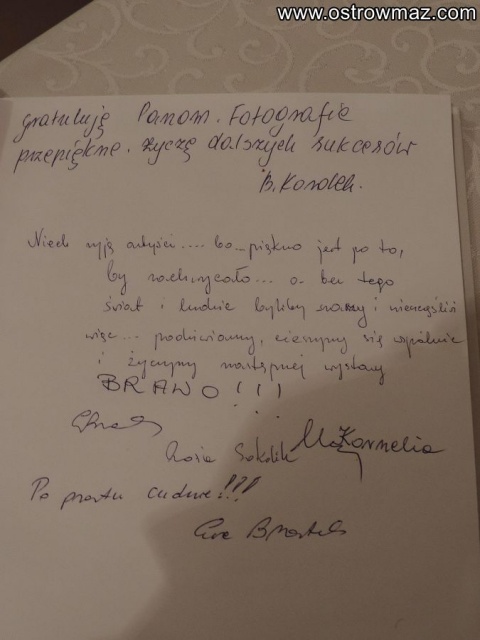 www.ostrowmaz.com
gratuluję Panom. Fotografie
przepiękne. życzę dalszych sukcesów
B.
Niech żyją artyści.... bo... piękno jest po to,
by zachwycało... a bez tego
świat i ludzie byliby szarzy i nieszczęśliwi
więc... podziwiamy, cieszymy się wspólnie
i życzymy następnej wystawy
BRAWO!!!
Sokolik Kornelia
Po prostu cudne!!!
Ewa